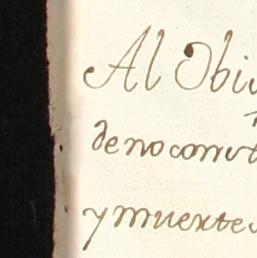 Al Obi
de no conut
y muertes